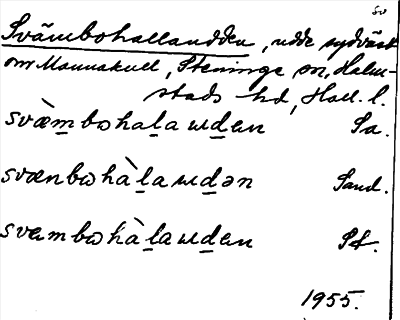 sv
Svämbohallaudden, udde sydväst
om Mannakull, Steninge sn, Halm-
stads hd, Hall. l.
svæ̀mbωhala ɯden Sa.
svænbωhàla ɯdən Sand.
svembωhàla ɯden St.
1955.